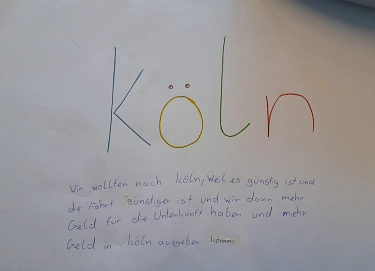 Köln
Wir wollten nach Köln, weil es günstig ist und
die Fahrt günstiger ist und wir dann mehr
Geld für die Unterkunft haben und mehr
Geld in Köln ausgeben können